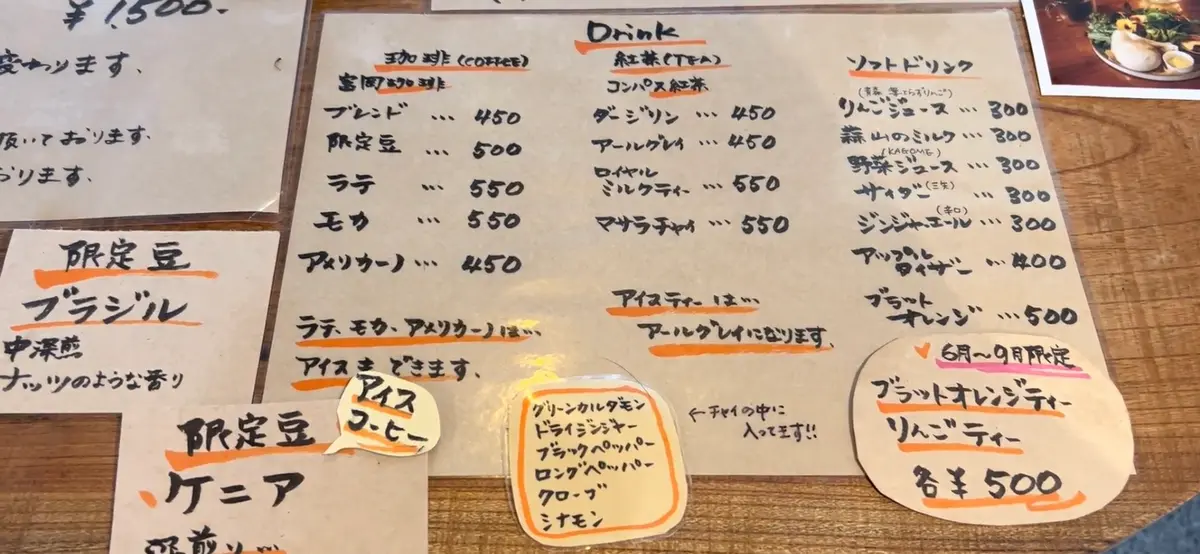 ¥1,500-
変わります、
頂いております、
おります、
Drink
珈琲(COFFEE)
富岡珈琲
ブレンド … 450
限定豆 … 500
ラテ … 550
モカ … 550
アメリカーノ … 450
ラテ、モカ、アメリカーノは…
アイスもできます、
アイス
コーヒー
紅茶(TEA)
コンパス紅茶
ダージリン … 450
アールグレイ … 450
ロイヤル
ミルクティー … 550
マサラチャイ … 550
アイスティーは…
アールグレイになります、
グリーンカルダモン
ドライジンジャー
ブラックペッパー
ロングペッパー
クローブ
シナモン
←チャイの中に
入ってます!!
ソフトドリンク
りんごジュース … 300
蒜山のミルク … 300
(KAGOME)
野菜ジュース … 300
サイダー(三矢) … 300
(辛口)
ジンジャーエール … 300
アップル
タイザー … 400
ブラット
オレンジ … 500
6月〜9月限定
ブラットオレンジティー
りんごティー
各¥500
限定豆
ブラジル
中深煎
ナッツのような香り
限定豆
ケニア
深煎り…